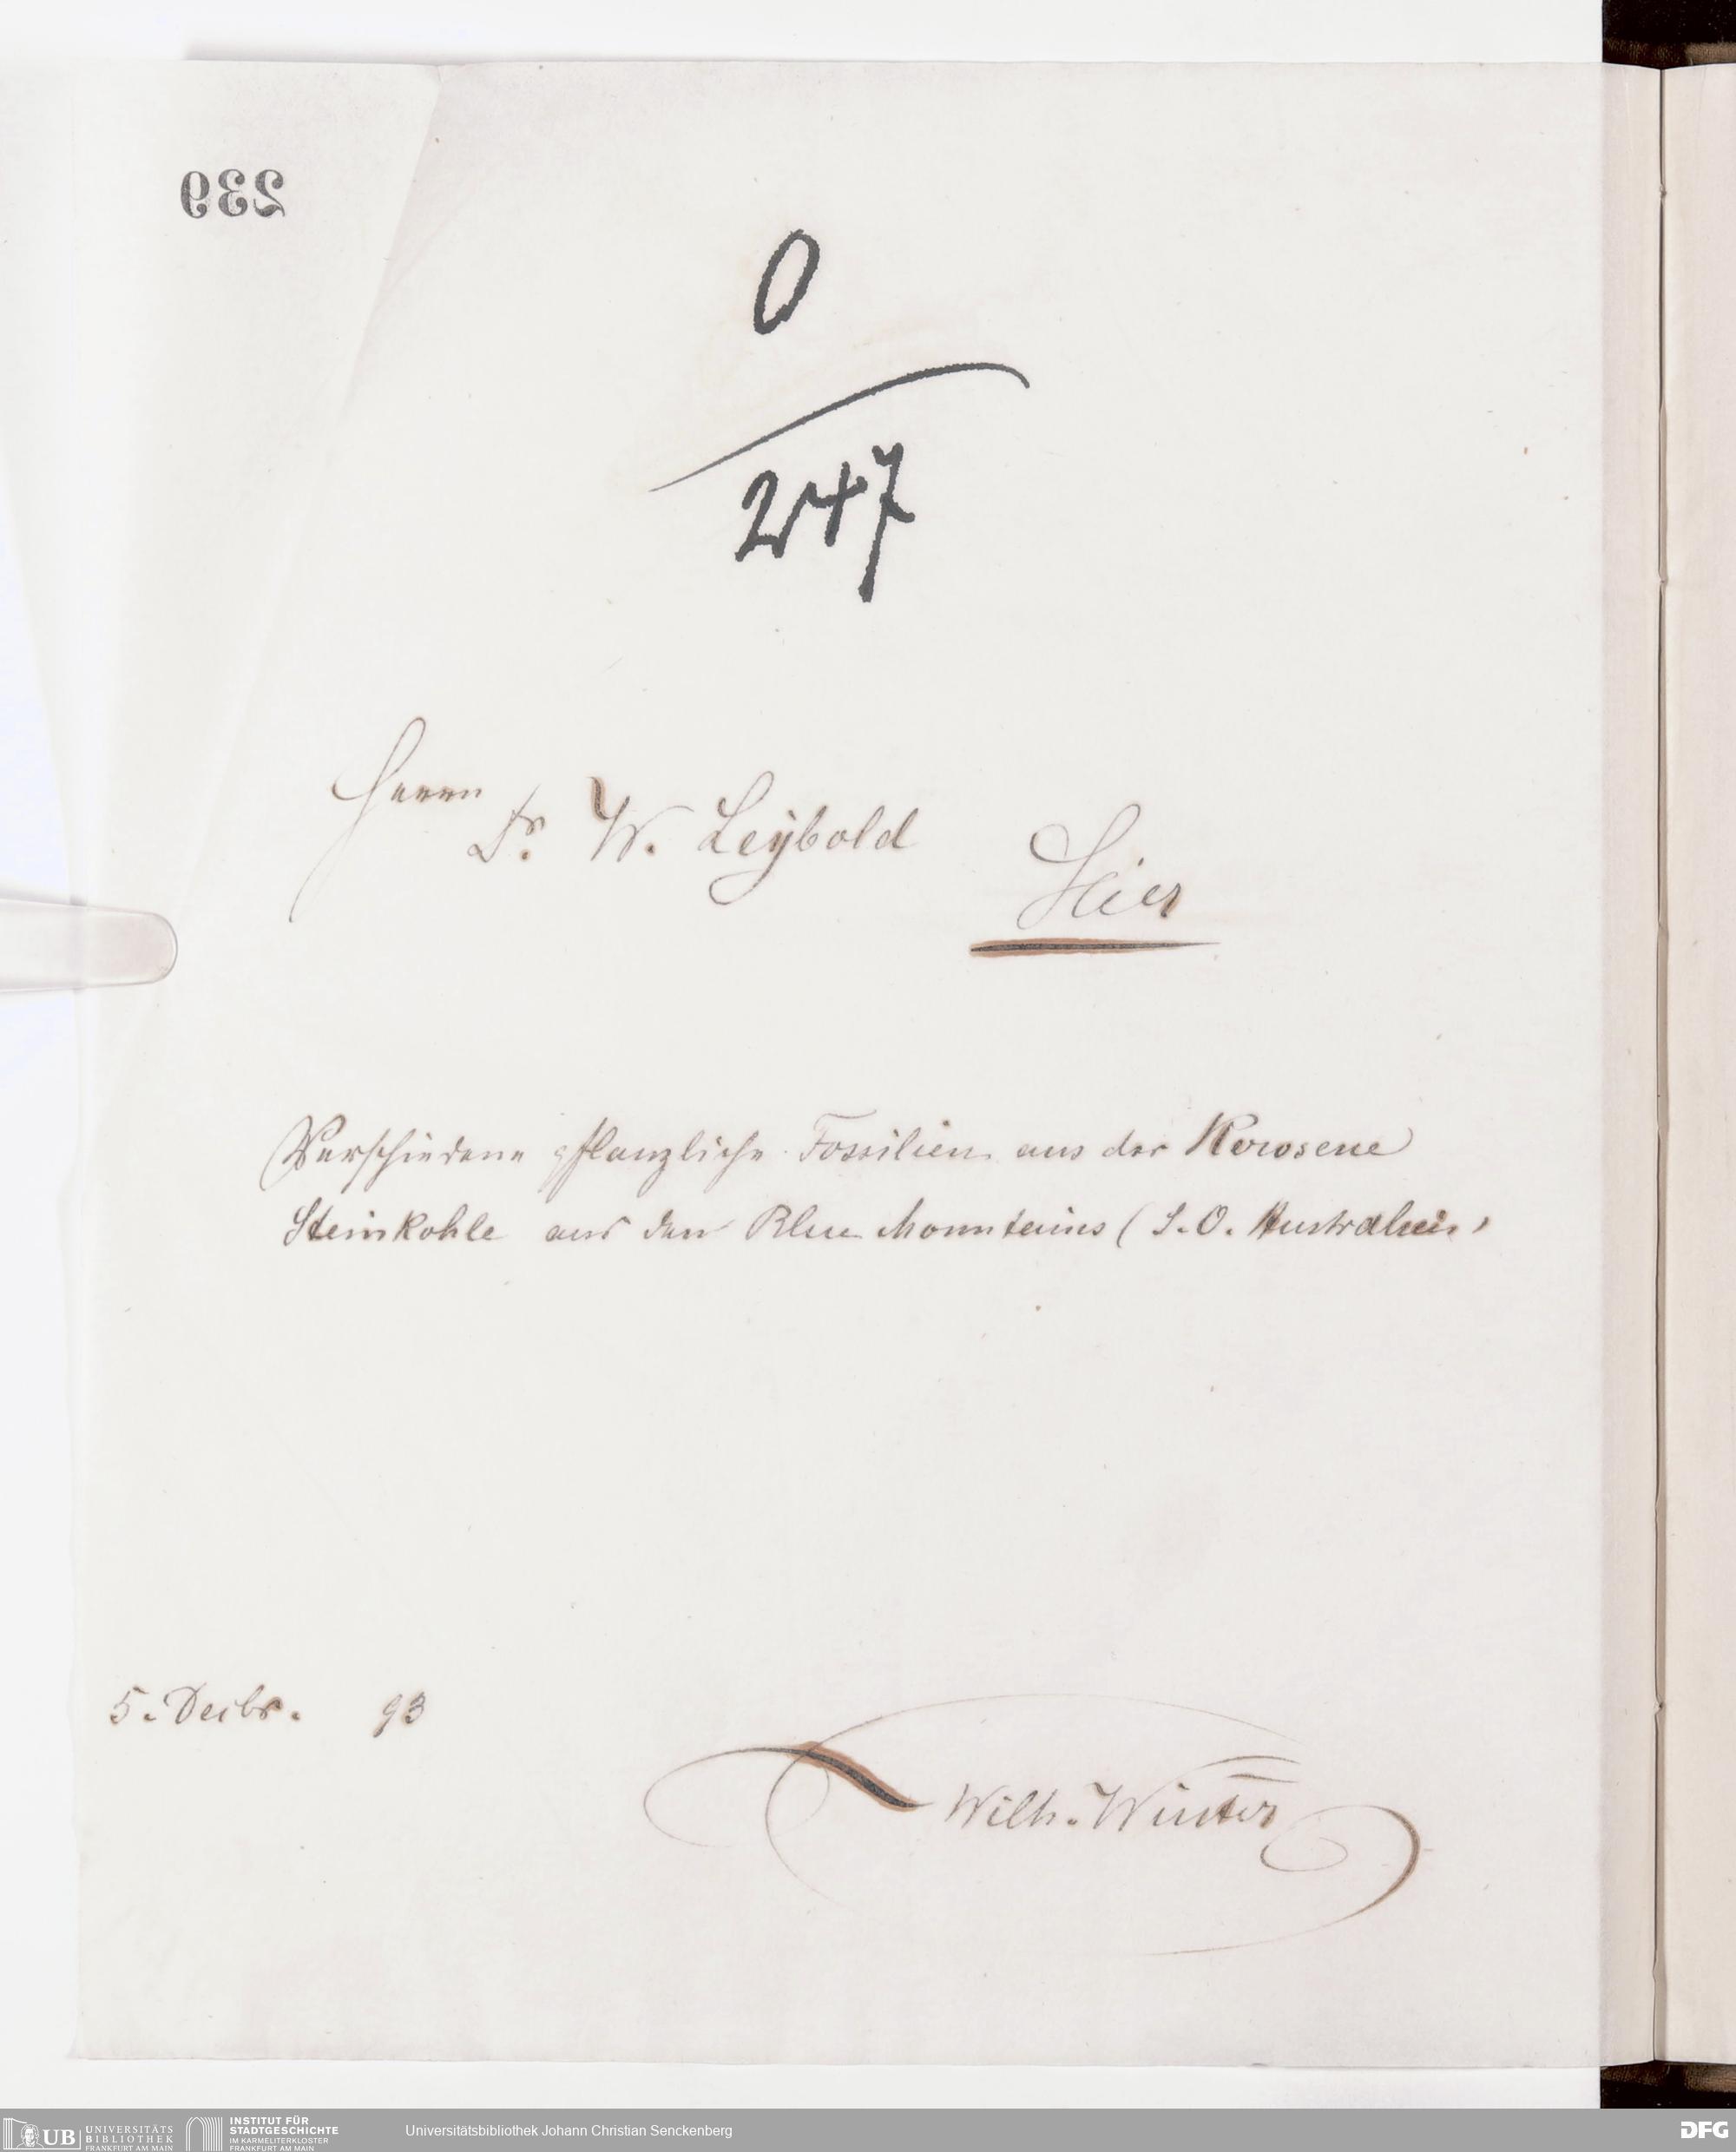 239
0
247
Herrn
Dr. W. Leybold
Hier
Verschiedene pflanzliche Fossilien aus der Kerosene
Steinkohle aus den Blue Mountains (S.O. Australien)
5. Decbr. 93
Wilh. Winter
UB UNIVERSITÄTS
BIBLIOTHEK
FRANKFURT AM MAIN
INSTITUT FÜR
STADTGESCHICHTE
IM KARMELITERKLOSTER
FRANKFURT AM MAIN
Universitätsbibliothek Johann Christian Senckenberg
DFG